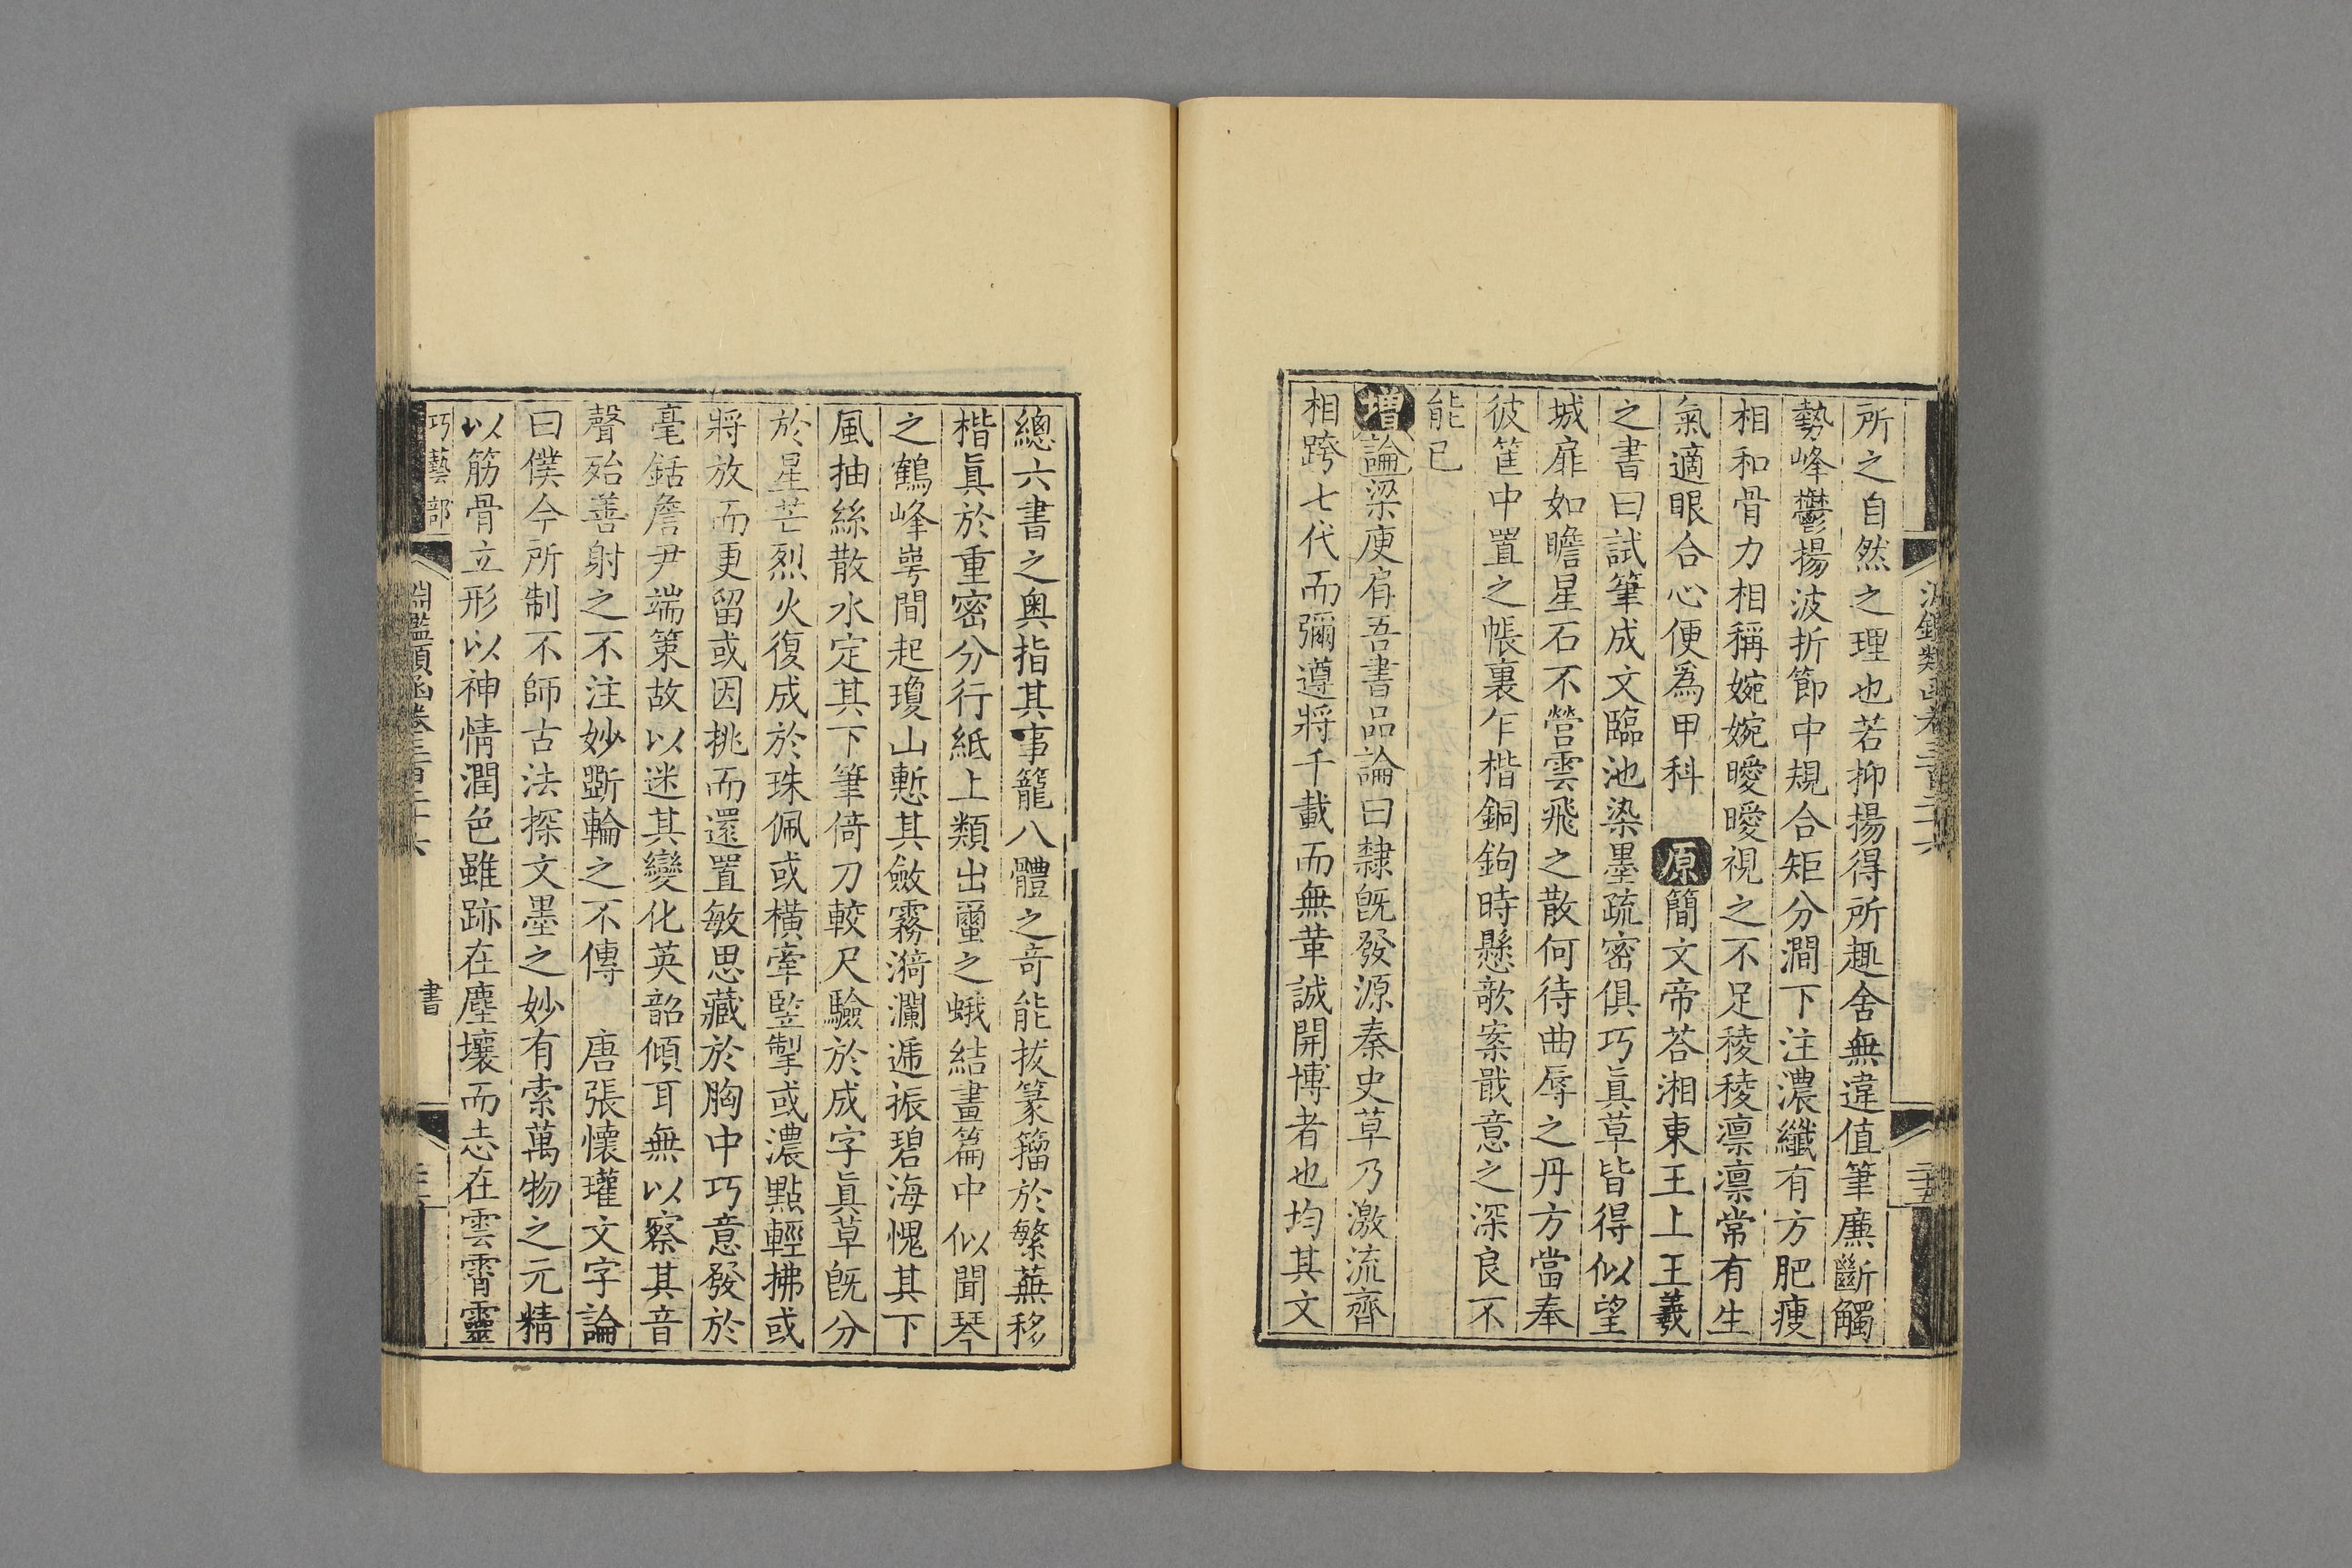 所之自然之理也若抑揚得所趣舍無違值筆廉斷觸
勢峰鬱揚波折節中規合矩分澗下注濃纖有方肥瘦
相和骨力相稱婉婉曖曖視之不足稜稜凛凛常有生
氣適眼合心便爲甲科 原簡文帝荅湘東王上王羲
之書曰試筆成文臨池染墨疏密俱巧眞草皆得似望
城扉如瞻星石不營雲飛之散何待曲辱之丹方當奉
彼筐中置之帳裏乍楷銅鉤時懸欹案戢意之深良不
能已
增論梁庾肩吾書品論曰隸旣發源秦史草乃激流齊
相跨七代而彌遵將千載而無革誠開博者也均其文
總六書之奧指其事籠八體之竒能拔篆籀於繁蕪移
楷眞於重密分行紙上類出蠒之蛾結畫篇中似聞琴
之鶴峰崿間起瓊山慙其斂霧漪瀾遞振碧海愧其下
風抽絲散水定其下筆倚刀較尺驗於成字眞草旣分
於星芒烈火復成於珠佩或橫牽竪掣或濃點輕拂或
將放而更留或因挑而還置敏思藏於胸中巧意發於
毫銛詹尹端策故以迷其變化英韶傾耳無以察其音
聲殆善射之不注妙斵輪之不傳 唐張懷瓘文字論
曰僕今所制不師古法探文墨之妙有索萬物之元精
以筋骨立形以神情潤色雖跡在塵壤而志在雲霄靈
巧藝部 淵鑑類函卷三百二十六 書